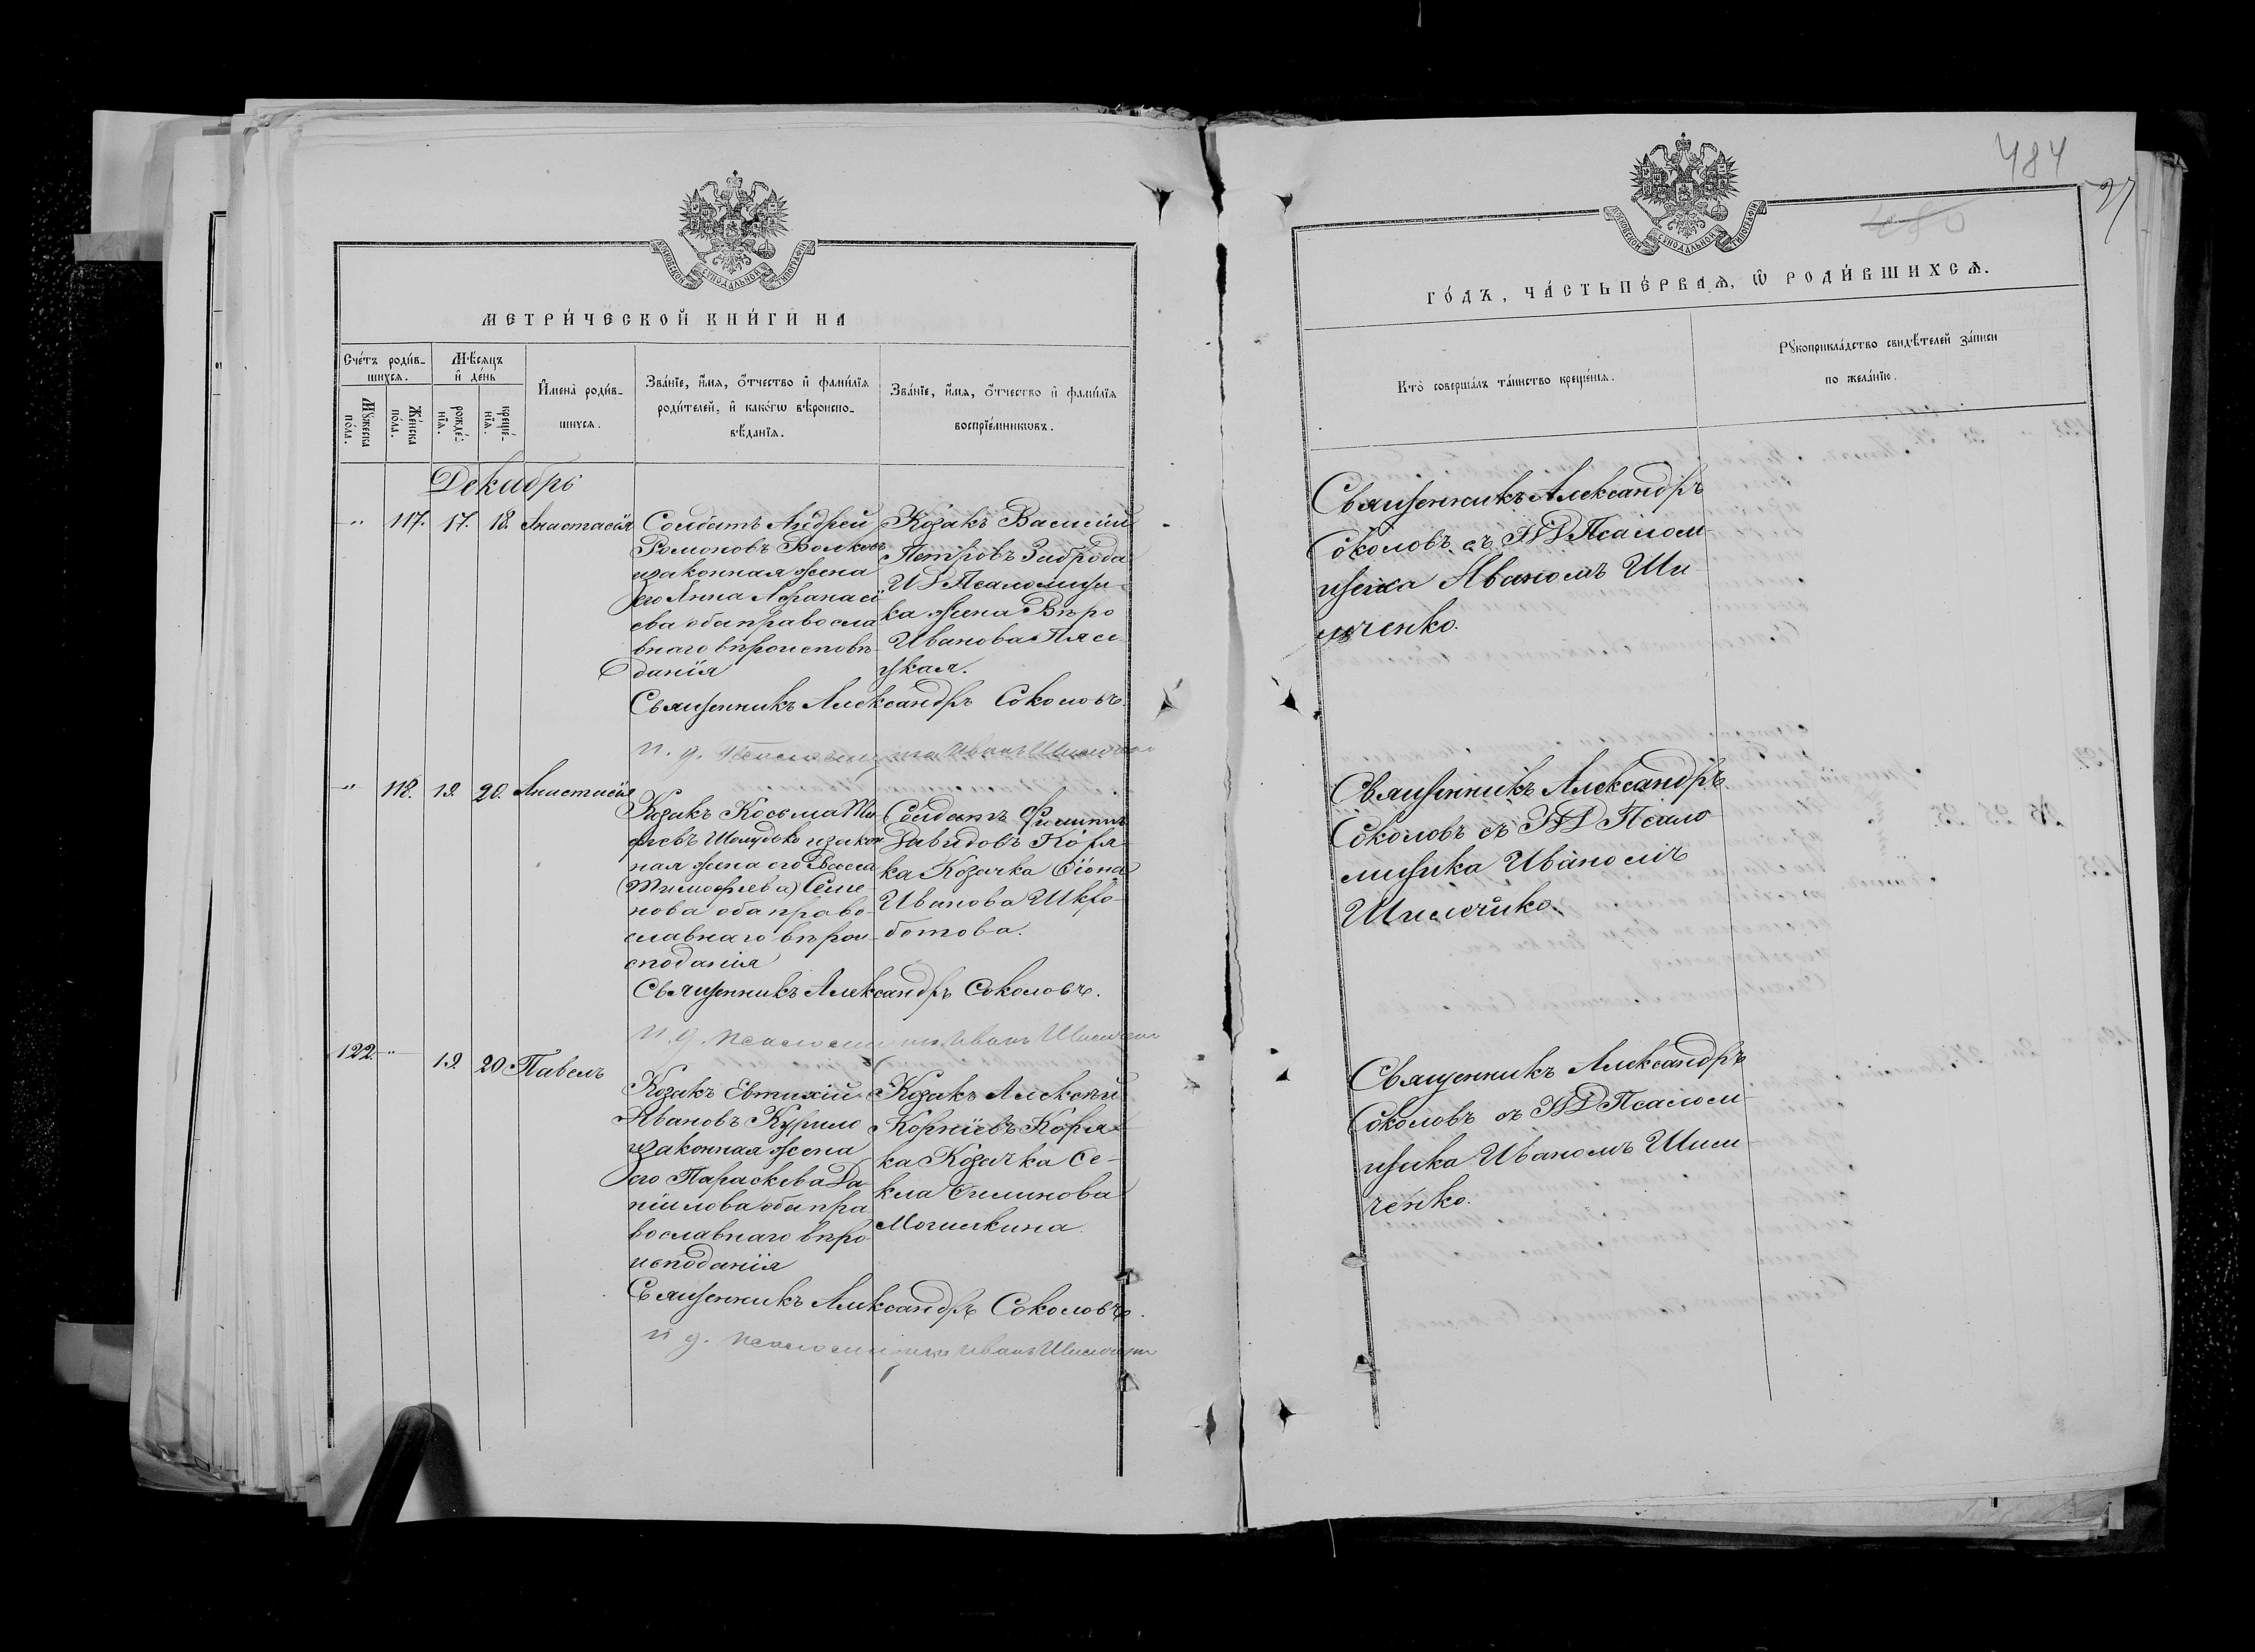 МОСКОВСКОЙ СУНОДАЛЬНОЙ ТИПОГРАФІИ
МЕТРИ́ЧЕСКОЙ КНИ́ГИ НА
Сче́тъ роди́в-
шихсѧ.
Мѣ́сѧцъ
и҆ де́нь
Мꙋ́жеска
по́ла.
Же́нска
по́ла.
рожде́-
нїѧ.
креще́-
нїѧ.
И҆мена̀ роди́в-
шихсѧ.
Зва́нїе, и҆́мѧ, ѻ҆́тчество и҆ фами́лїѧ
роди́телей, и҆ како́гѡ вѣроиспо-
вѣ́данїѧ.
Зва́нїе, и҆́мѧ, ѻ҆́тчество и҆ фами́лїѧ
воспрїе́мникѡвъ.
Декабрь
" 117. 17. 18. Анастасія
Солдатъ Андрей
Романовъ Волковъ
изаконная жена
его Анна Афанасі
ева оба правосла
внаго вѣроисповѣ
данія
Козакъ Василій
Петровъ Заброда
ИД Псаломщи-
ка жена Вѣра
Иванова Пясе
цкая.
Священникъ Александръ Соколовъ.
и. д. Псаломщика Иванъ
" 118. 19. 20. Анастасія
Козакъ Косьма Ти
фіевъ изакон
ная жена его Васса
(Тимофіева) Семе
нова оба право-
славнаго вѣрои-
споданія
Солдатъ Филиппъ
Давидовъ Коря
ка Козачка
Иванова Шкро-
ботова.
Священникъ Александръ Соколовъ.
и. д. псаломщика Иванъ
122. " 19 20 Павелъ
Козакъ Евтихій
Ивановъ Курило
изаконная жена
его Параскева Да
ніилова оба пра
вославнаго вѣро
исподанія
Козакъ Алексѣй
Корніевъ Коря-
ка Козачка Ѳе-
кла Филипова
Могилкина.
Священникъ Александръ Соколовъ.
и д. псаломщика Иванъ
484
27
МОСКОВСКОЙ СУНОДАЛЬНОЙ ТИПОГРАФІИ
ГО́ДЪ, ЧА́СТЬ ПЕ́РВАѦ, Ѽ РОДИ́ВШИХСѦ.
Кто̀ соверша́лъ та́инство креще́нїѧ.
Рꙋкоприкла́дство свидѣ́телей за́писи
по жела́нїю.
Священникъ Александръ
Соколовъ съ ИД Псалом-
щика Иваномъ Ши-
ченко.
Священникъ Александръ
Соколовъ съ ИД Псало
мщика Иваномъ
Священникъ Александръ
Соколовъ съ ИД Псалом-
щика Иваномъ Шим
ченко.